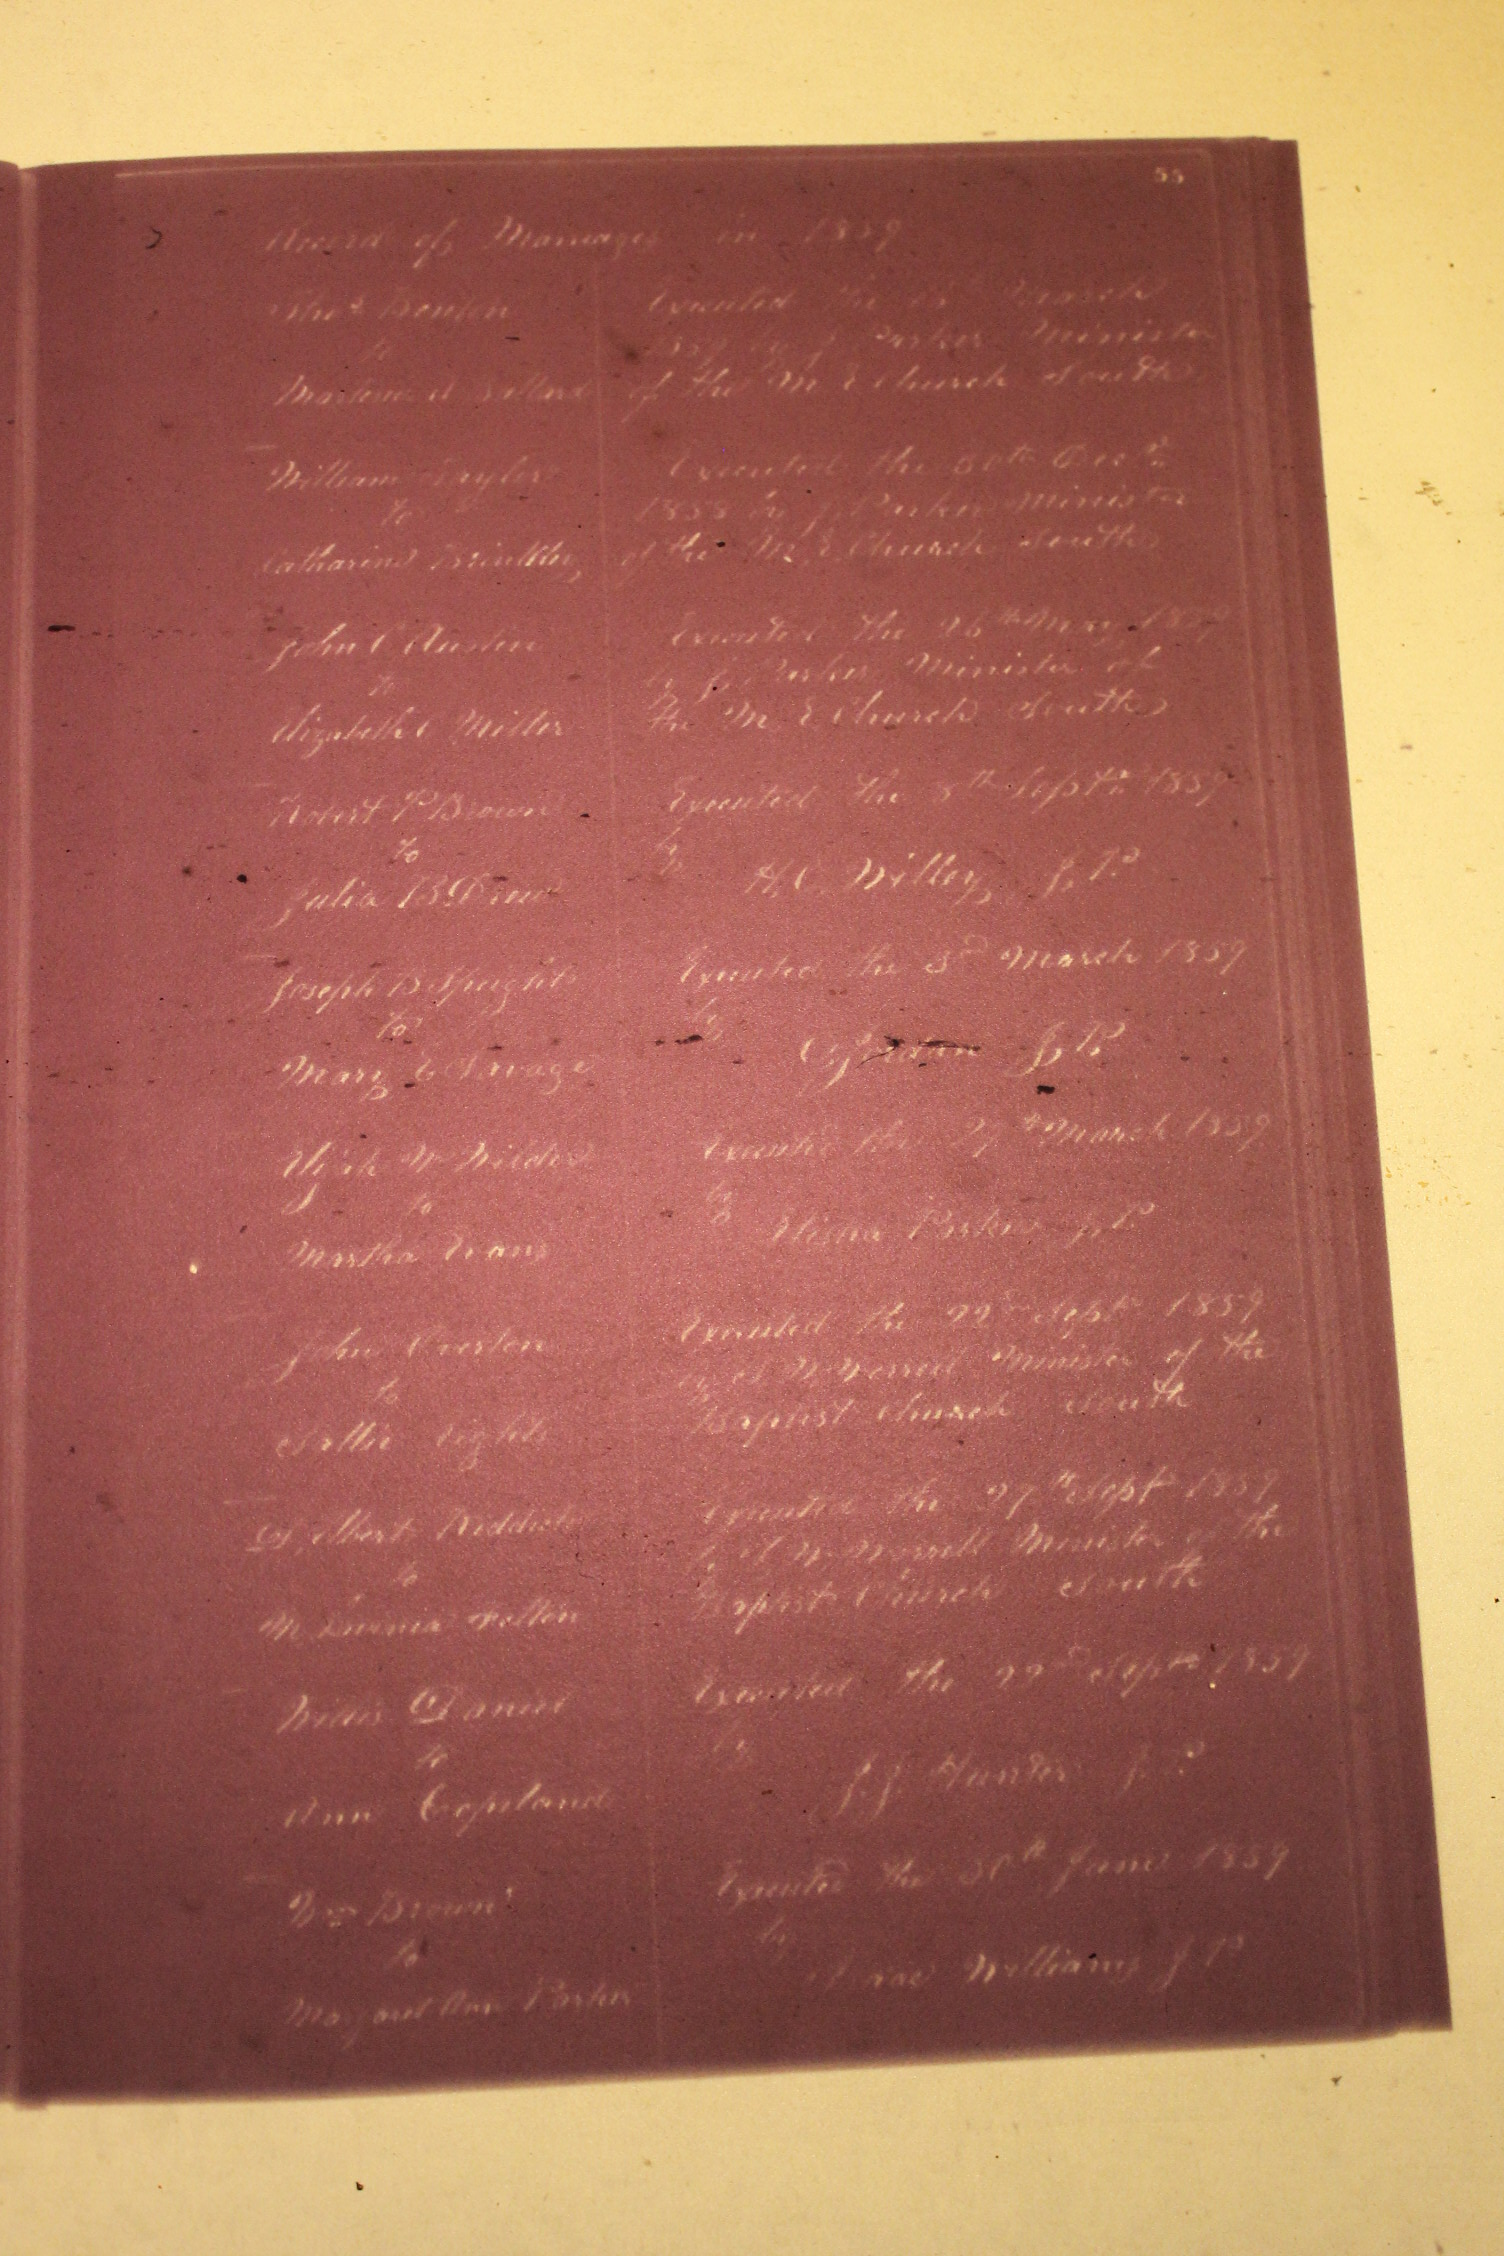 55
Record of Marriages in 1859
Benton
Executed the March
to
1859 by J Parker Minister
Ballard
of the M E Church South
William Taylor
Executed the 30th Dec
to
1858 by J Parker Minister
Catharine Brinkley
of the M E Church South
John C Austin
Executed the 26th May 1859
to
by J Parker Minister of
Elizabeth C Miller
the M E Church South
Robert P Brown
Executed the 8th Sept 1859
to
by
Julia B Drew
H. C. Willey J. P.
Joseph B Speight
Executed the 3rd March 1859
to
by
Mary E Savage
J. P.
Elijah W Wilder
Executed the 27th March 1859
to
by
Martha Evans
Elisha Parker J. P.
John
Executed the 22nd Sept 1859
to
by Minister of the
Sallie
Baptist Church South
Albert Riddick
Executed the 27th Sept 1859
to
by Minister of the
M Felton
Baptist Church South
Willis Daniel
Executed the 22nd Sept 1859
to
by
Ann Copeland
J. J. Hunter J. P.
Wm Brown
Executed the 30th June 1859
to
by
Margaret Ann Parker
Isaac Williams J P